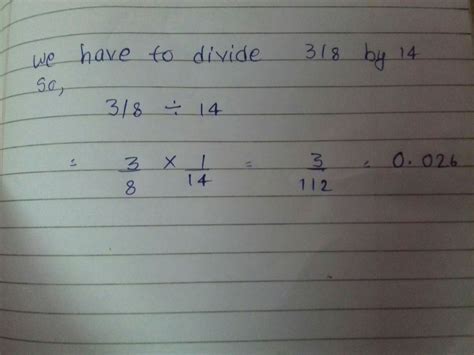 we have to divide 3/8 by 14
So,
3/8 ÷ 14
= 3/8 × 1/14 = 3/112 = 0.026